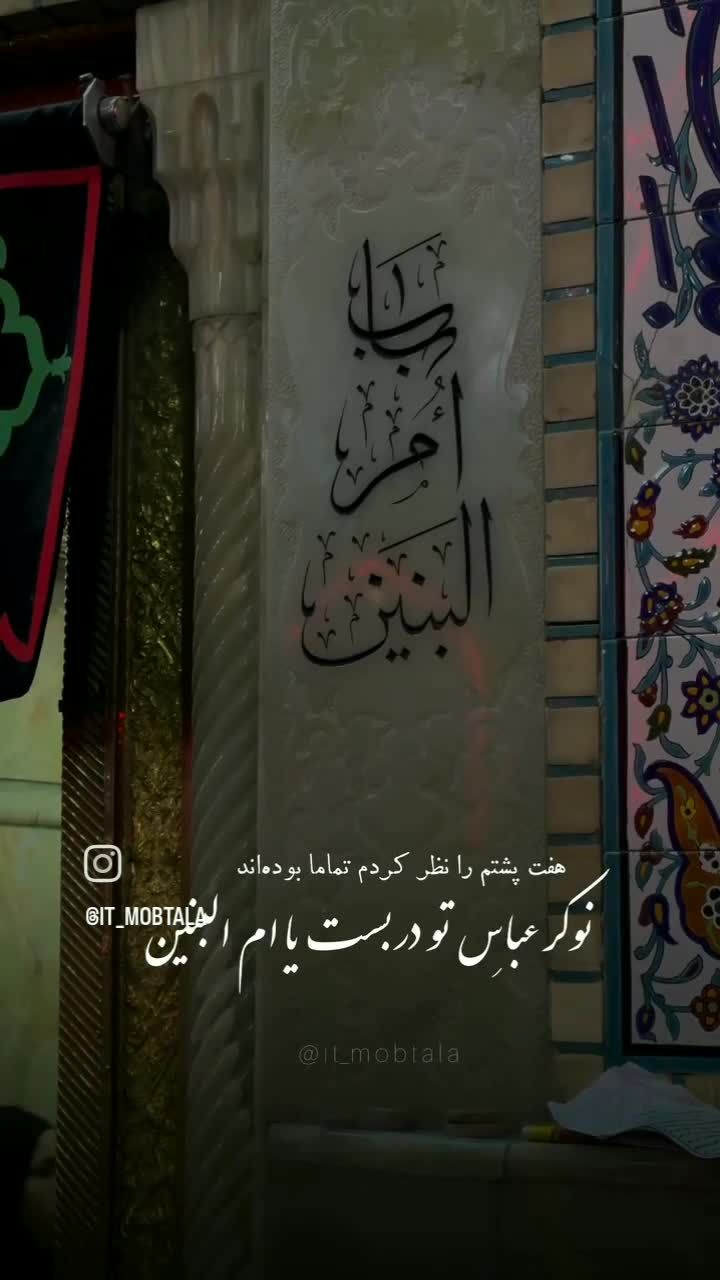 باب
أم
البنین
هفت پشتم را نظر کردم تماما بوده‌اند
نوکر عباسِ تو دربست یا ام البنین
@IT_MOBTALA
@it_mobtala